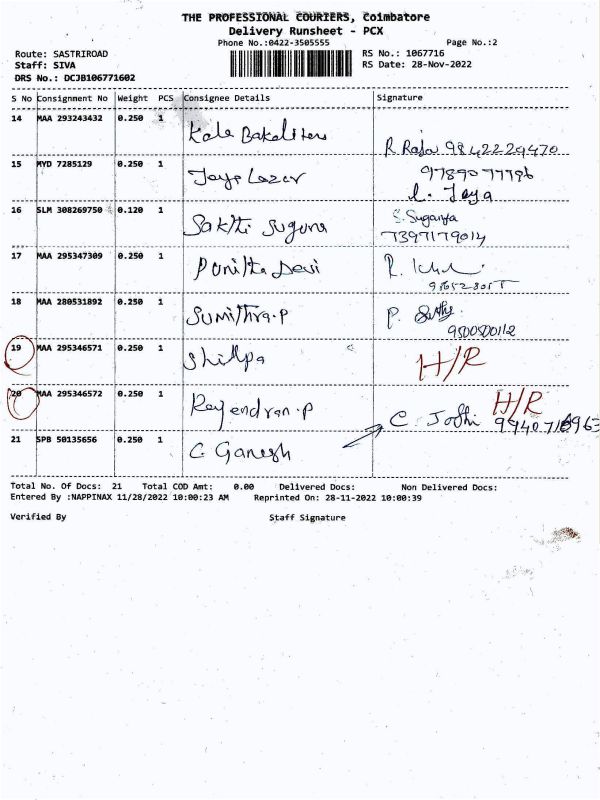 THE PROFESSIONAL COURIERS, Coimbatore
Delivery Runsheet - PCX
Phone No.:0422-3505555 Page No.:2
Route: SASTRIROAD RS No.: 1067716
Staff: SIVA RS Date: 28-Nov-2022
DRS No.: DCJB106771602
S No Consignment No Weight PCS Consignee Details Signature
14 MAA 293243432 0.250 1 Kala Bakelites R. Raja 9842229470
15 MYD 7285129 0.250 1 Jaya Lazer 9789077796
L. Jaya
16 SLM 308269750 0.120 1 Sakthi Suguna S. Suganya
7397179014
17 MAA 295347309 0.250 1 Punitha Devi R.
18 MAA 280531892 0.250 1 Sumithra.P P.
9500500112
19 MAA 295346571 0.250 1 Shillpa H/R
20 MAA 295346572 0.250 1 Rajendran.P H/R
C. Jothi
21 SPB 50135656 0.250 1 C Ganesh
Total No. Of Docs: 21 Total COD Amt: 0.00 Delivered Docs: Non Delivered Docs:
Entered By :NAPPINAX 11/28/2022 10:00:23 AM Reprinted On: 28-11-2022 10:00:39
Verified By Staff Signature